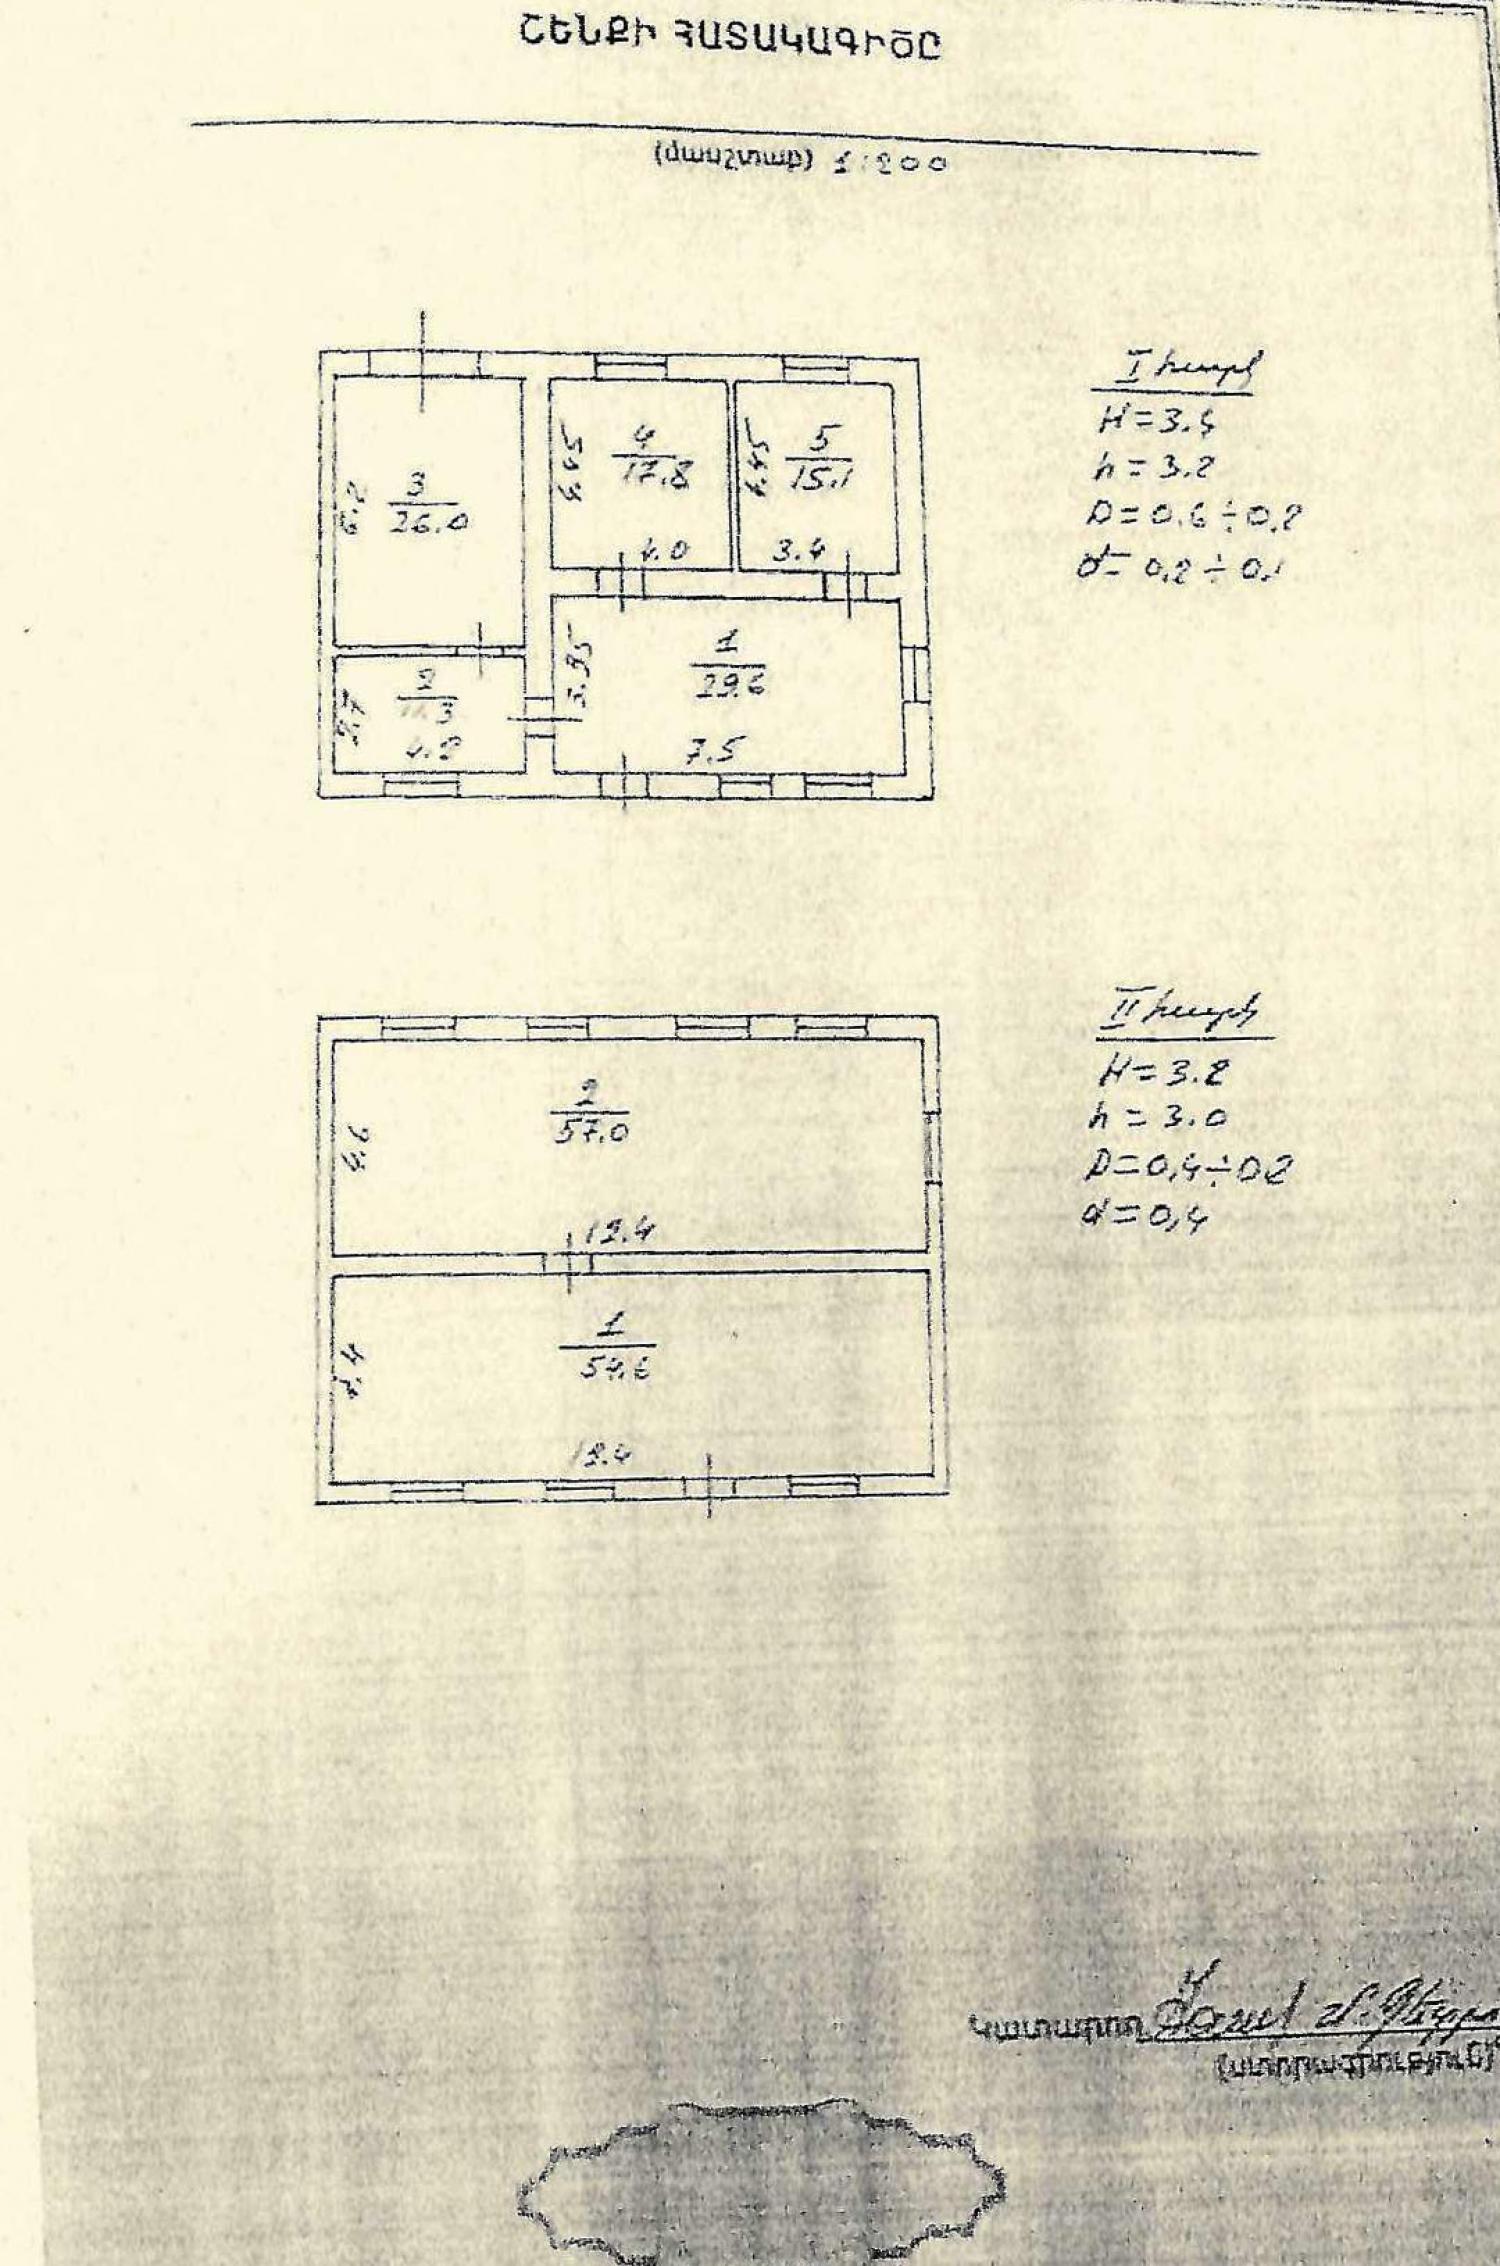 ՇԵՆՔԻ ՀԱՏԱԿԱԳԻԾԸ
(մասշտաբ) 1:200
I հարկ
H=3.4
h=3.2
D=0.6÷0.2
d=0.2÷0.1
6.2
3
26.0
4.45
4
17.8
4.0
4.45
5
15.1
3.4
2.7
2
11.3
4.2
3.95
1
29.6
7.5
II հարկ
H=3.2
h=3.0
D=0,4÷02
d=0,4
4.6
2
57.0
12.4
4.4
1
54.6
12.4
Կատարող
(ստորագրություն)